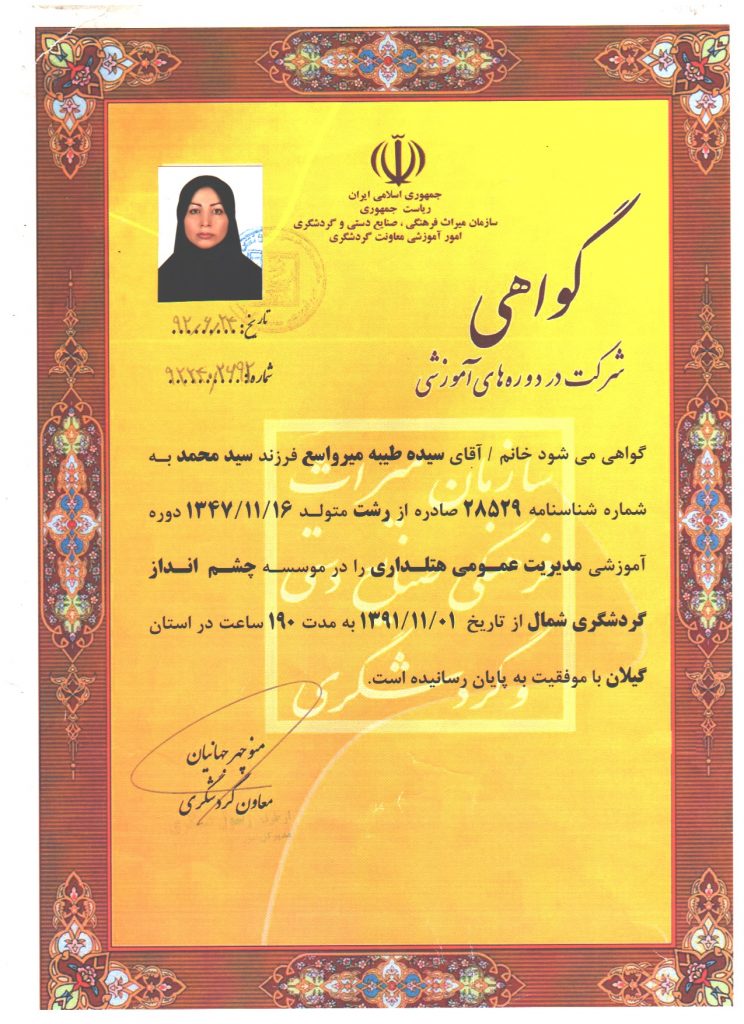 جمهوری اسلامی ایران
ریاست جمهوری
سازمان میراث فرهنگی ، صنایع دستی و گردشگری
امور آموزشی معاونت گردشگری
گواهی
شرکت در دوره های آموزشی
تاریخ: ۹۲،۶،۲۴
شماره: ۹۲۲۴،۲۶۹۲
گواهی می شود خانم / آقای سیده طیبه میرواسع فرزند سید محمد به
شماره شناسنامه ۲۸۵۲۹ صادره از رشت متولد ۱۳۴۷/۱۱/۱۶ دوره
آموزشی مدیریت عمومی هتلداری را در موسسه چشم انداز
گردشگری شمال از تاریخ ۱۳۹۱/۱۱/۰۱ به مدت ۱۹۰ ساعت در استان
گیلان با موفقیت به پایان رسانیده است.
سازمان میراث
فرهنگی صنایع دستی
و گردشگری
منوچهر جهانیان
معاون گردشگری